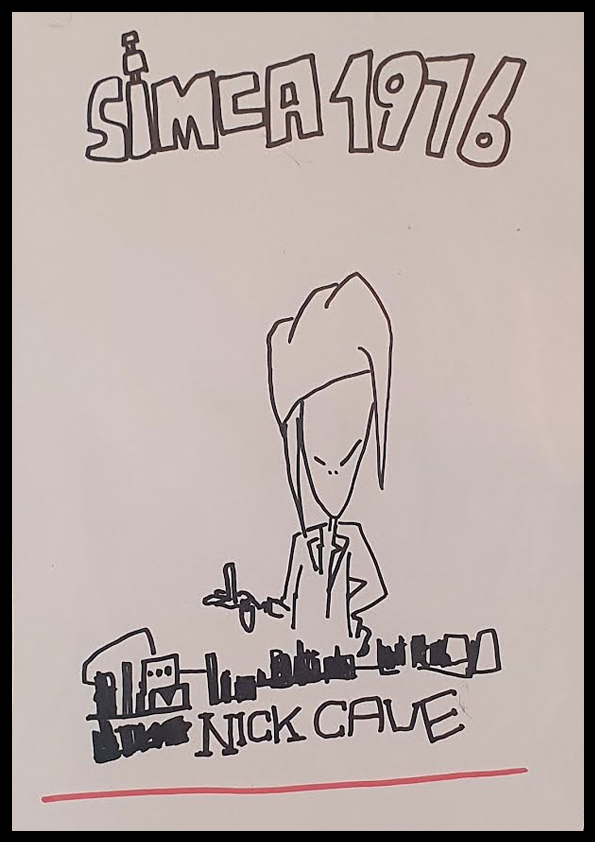 SIMCA 1976
NICK CAVE